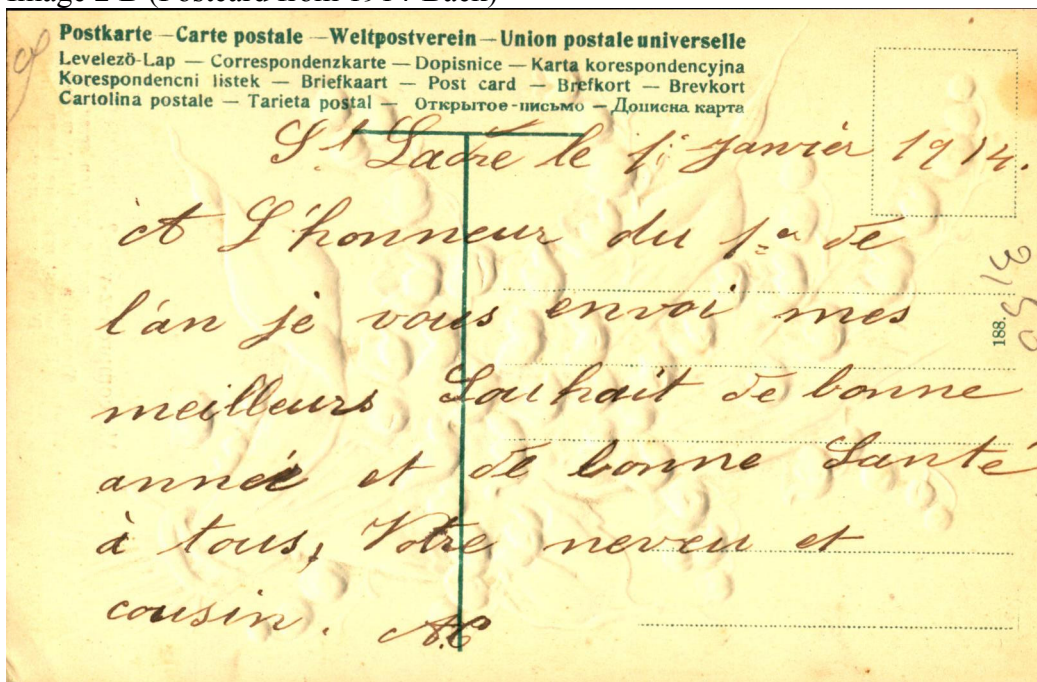 Image 2 B (Postcard from 1914 Back)
Postkarte — Carte postale — Weltpostverein — Union postale universelle
Levelező-Lap — Correspondenzkarte — Dopisnice — Karta korespondencyjna
Korespondencni listek — Briefkaart — Post card — Brefkort — Brevkort
Cartolina postale — Tarieta postal — Открытое-письмо — Дописна карта
St Ladre le 1i Janvier 1914.
A L'honneur du 1er de
l'an je vous envoi mes
meilleurs Souhait de bonne
année et de bonne Santé
à tous, Votre neveu et
cousin. A.C
188.